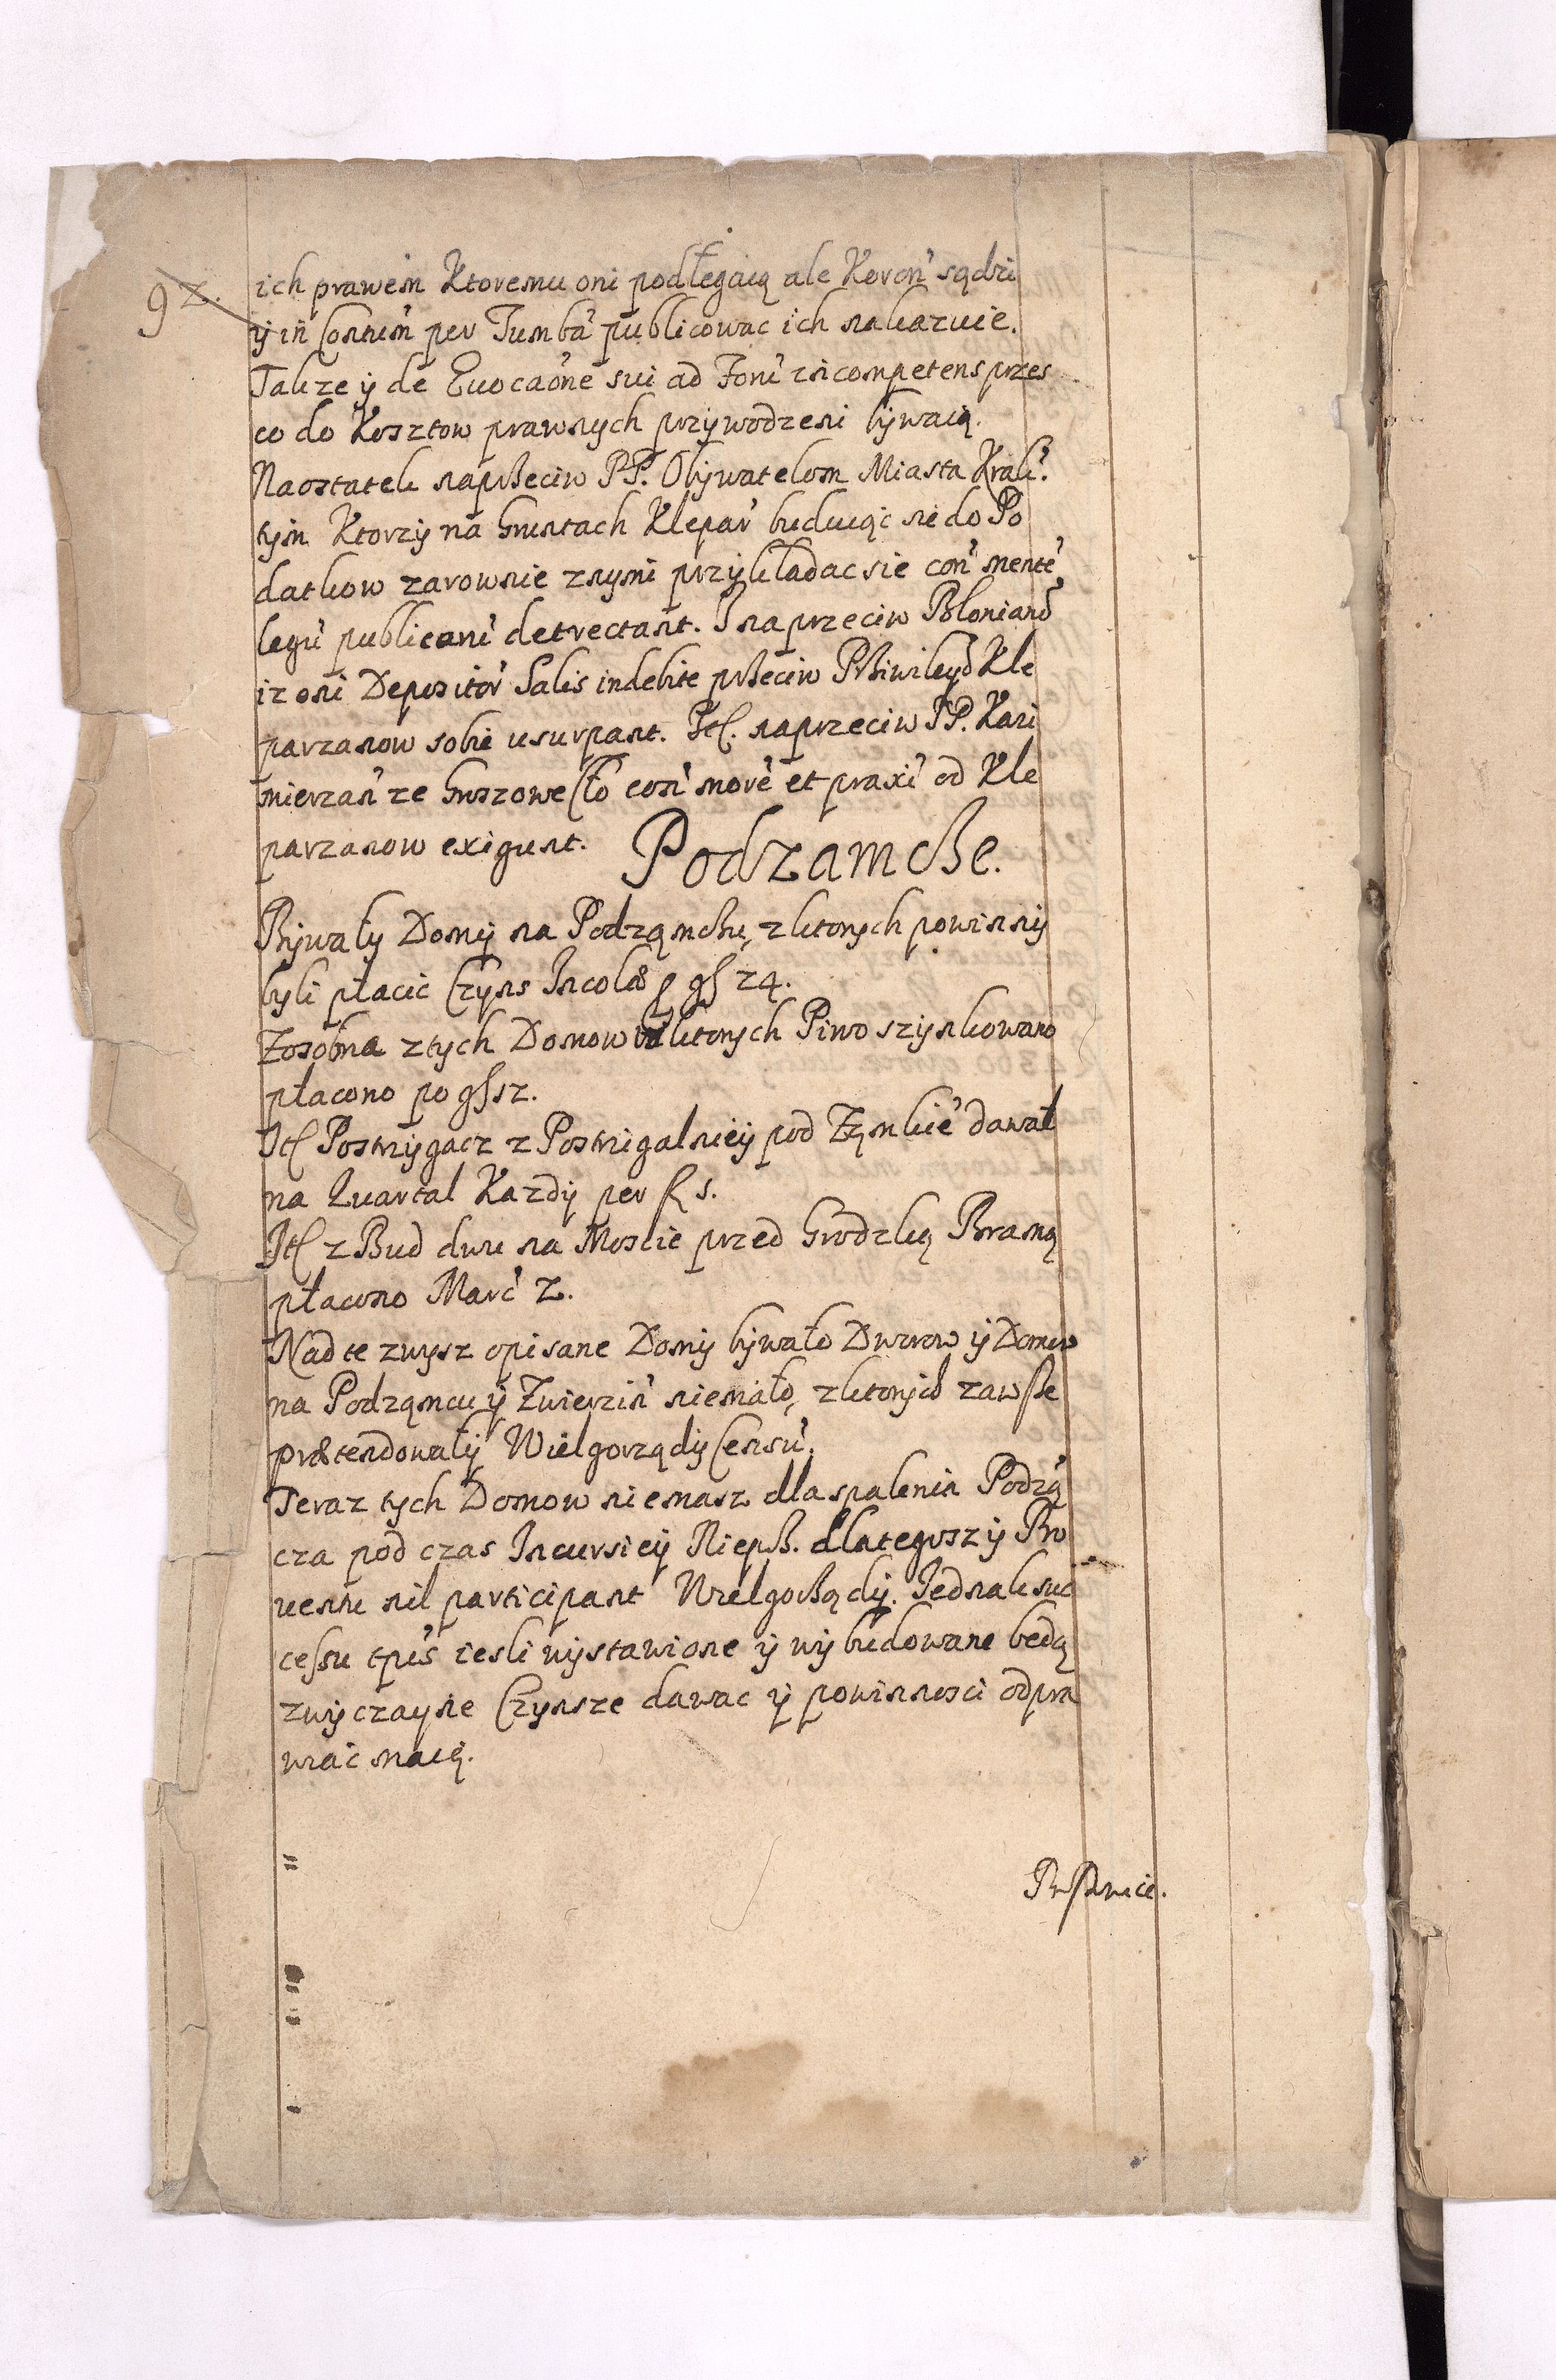 92.
ich prawem Ktoremu oni podłegaią ale Koron̄ sądzi
ÿ in per Tumbā publicowac ich nakazuie.
Takze ÿ de Euocaōne sui ad Forū incompetens przes
co do Kosztow prawnych przÿwodzeni bÿwaią.
Naostatek naprzeciw PP. Obÿwatelom Miasta Krak̄.
tÿm Ktorzÿ na Gruntach Klepar̄ buduiąc sie do Po
datkow zarownie znymi przÿkładac sie con̄ mentē
legū publicarū detrectant. I naprzeciw Błonianō
iz oni Depositōr Salis indebite przeciw Priwileyō Kle
parzanow sobie usurpant. Itē. naprzeciw PP. Kazi
mierzan̄ ze Groszowe Cło con̄ morē et praxī od Kle
parzanow exigunt.
Podzamcze.
Bÿwałÿ Domÿ na Podzamczu, z ktorych powinnÿ
byli płacic Czyns Incolæ p gſ 24.
Zosobna z tych Domow w ktorych Piwo szynkowano
płacono po gſ 12.
Itē Postrzÿgacz z Postrzigalnieÿ pod Zamkiē dawał
na Quartal Kazdÿ per ƒ 1.
Itē z Bud dwu na Moscie przed Grodzką Bramą
płacono Marc̄ 2.
Nad te zwysz opisane Domÿ bÿwało Dworow ÿ Domow
na Podzamcu ÿ Zwierzin̄ niemało, z ktorÿch zawsze
prætendowałÿ Wielgorządÿ Censū.
Teraz tych Domow niemasz dla spalenia Podzā
cza pod czas Incursieÿ Niepß. dlategosz ÿ Pro
uentu nil participant Wielgorządÿ. Jednak suc
cessu tp̄is iesli wÿstawione ÿ wÿbudowane bedą
zwÿczayne Czynsze dawac ÿ powinnosci odpra
wiac maią.